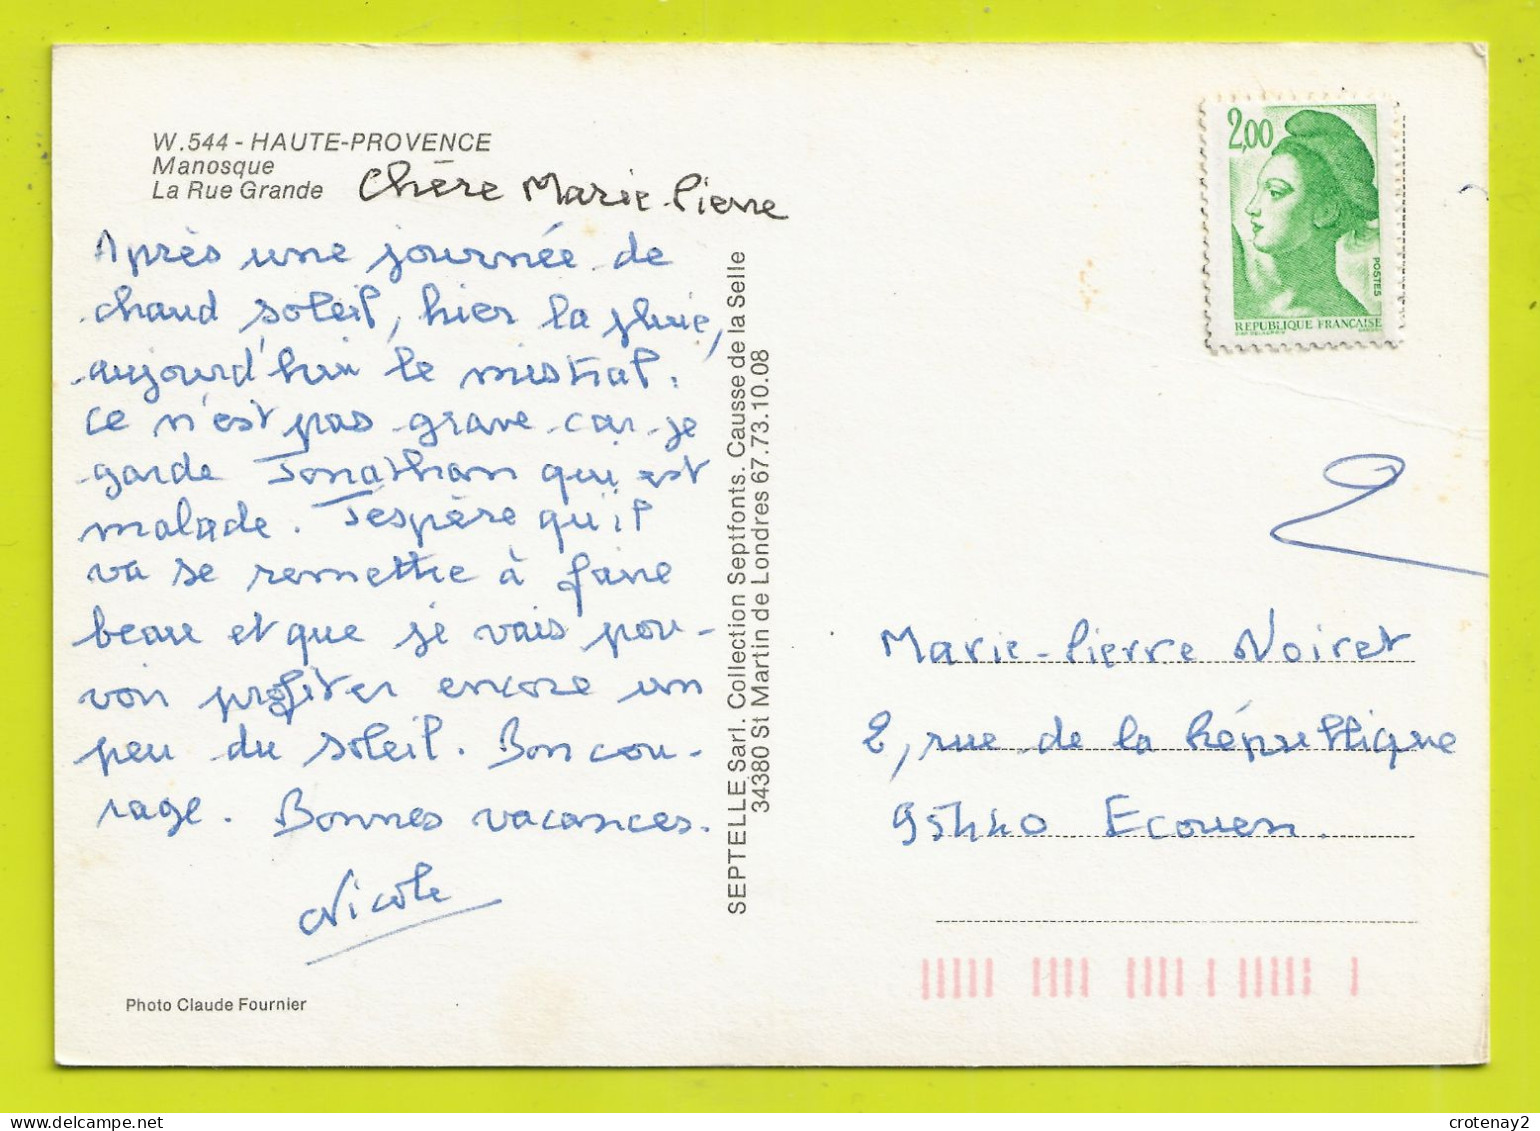 W.544 - HAUTE-PROVENCE
Manosque
La Rue Grande
Chère Marie-Pierre
Après une journée de
chaud soleil, hier la pluie,
aujourd'hui le mistral.
Ce n'est pas grave car je
garde Jonathan qui est
malade. J'espère qu'il
va se remettre à faire
beau et que je vais pou-
voir profiter encore un
peu du soleil. Bon cou-
rage. Bonnes vacances.
Nicole
Photo Claude Fournier
SEPTELLE Sarl. Collection Septfonts. Causse de la Selle
34380 St Martin de Londres 67.73.10.08
2,00
POSTES
REPUBLIQUE FRANÇAISE
Marie-Pierre Noiret
2, rue de la République
95440 Ecouen.
crotenay2